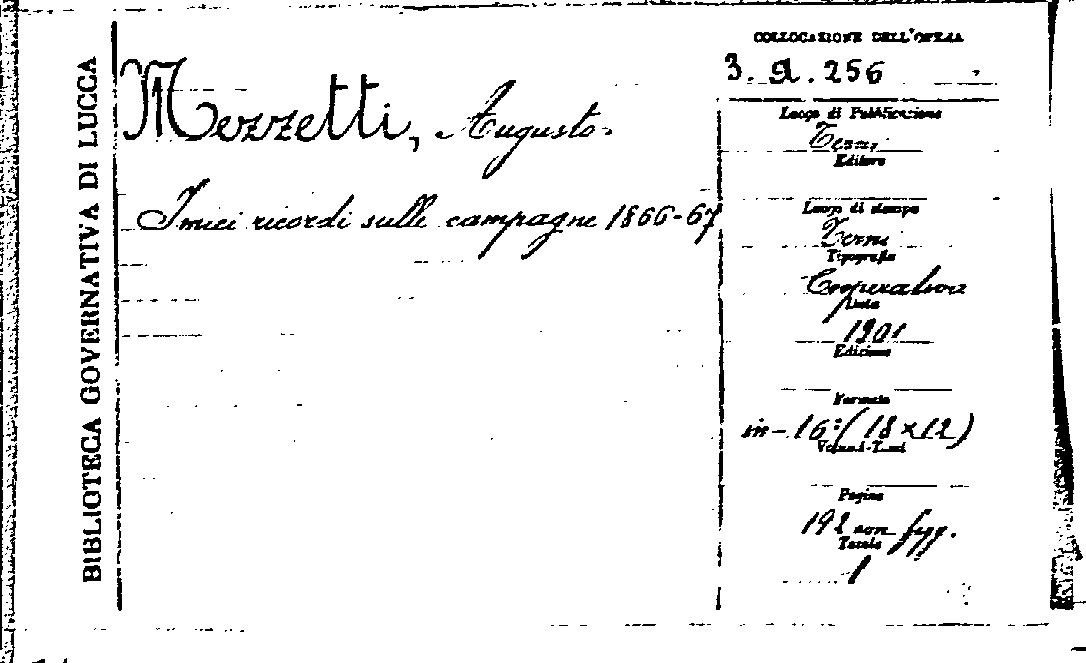 BIBLIOTECA GOVERNATIVA DI LUCCA
Mezzetti, Augusto.
I miei ricordi sulle campagne 1866-67
COLLOCAZIONE DELL'OPERA
3. A. 256
Luogo di Pubblicazione
Terni
Editore
Luogo di stampa
Terni
Tipografia
Cooperativa
Data
1901
Edizione
Formato
in-16º (18×12)
Volumi-Tomi
Pagine
192 con figg.
Tavole
1